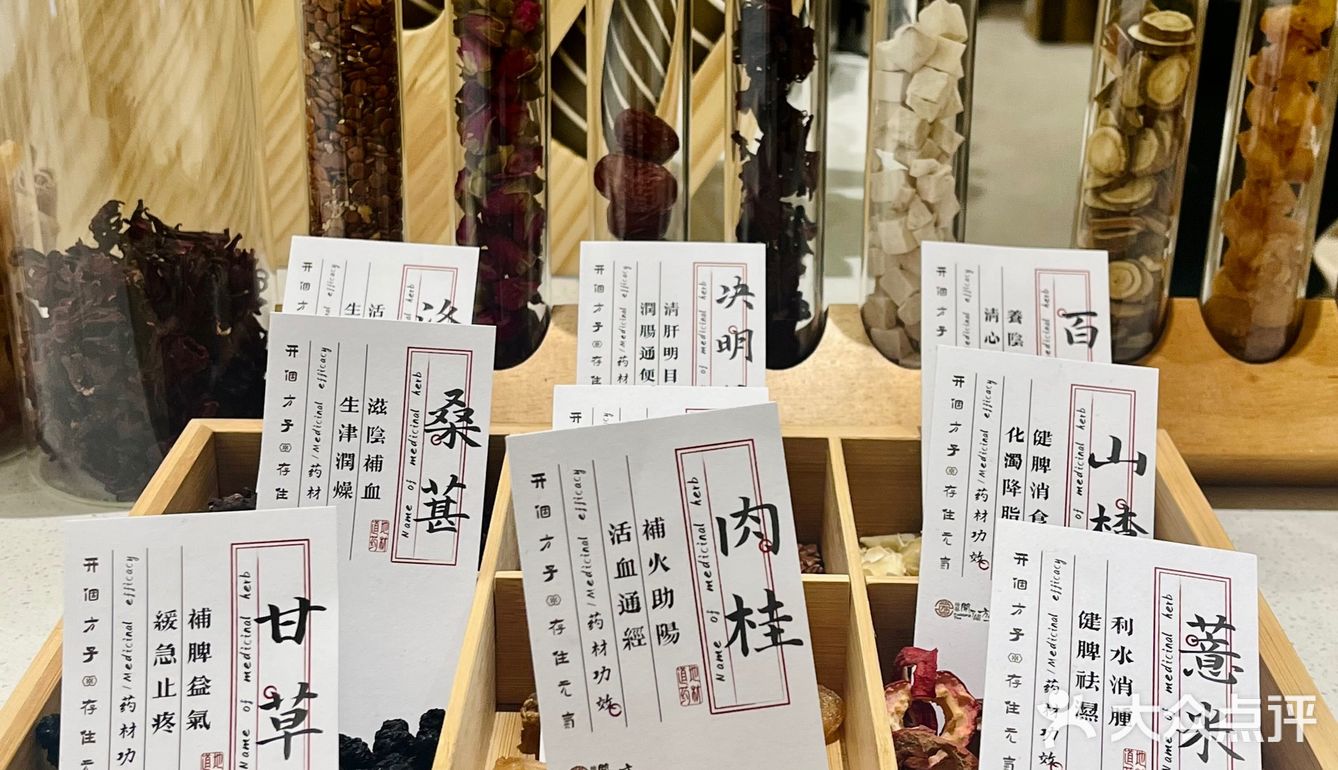 洛
活
生
开個方子 存住
药材/Medicinal efficacy
medicinal herb
决明
清肝明目
潤腸通便
开個方子 存住
药材/Medicinal efficacy
of medicinal herb
百
養陰
清心
开個方子
Medicinal efficacy
herb
桑葚
滋陰補血
生津潤燥
开個方子 存住
药材/Medicinal efficacy
Name of medicinal herb
道地药材
山楂
健脾消食
化濁降脂
开個方子 存住元氣
药材功效/Medicinal efficacy
of medicinal herb
甘草
補脾益氣
緩急止疼
开個方子 存住
药材功/Medicinal efficacy
Name of medicinal herb
肉桂
補火助陽
活血通經
开個方子 存住元氣
药材功效/Medicinal efficacy
Name of medicinal herb
道地药材
薏米
利水消腫
健脾祛濕
开個方子 存住元氣
药材功效/Medicinal efficacy
Name of medicinal herb
大众点评